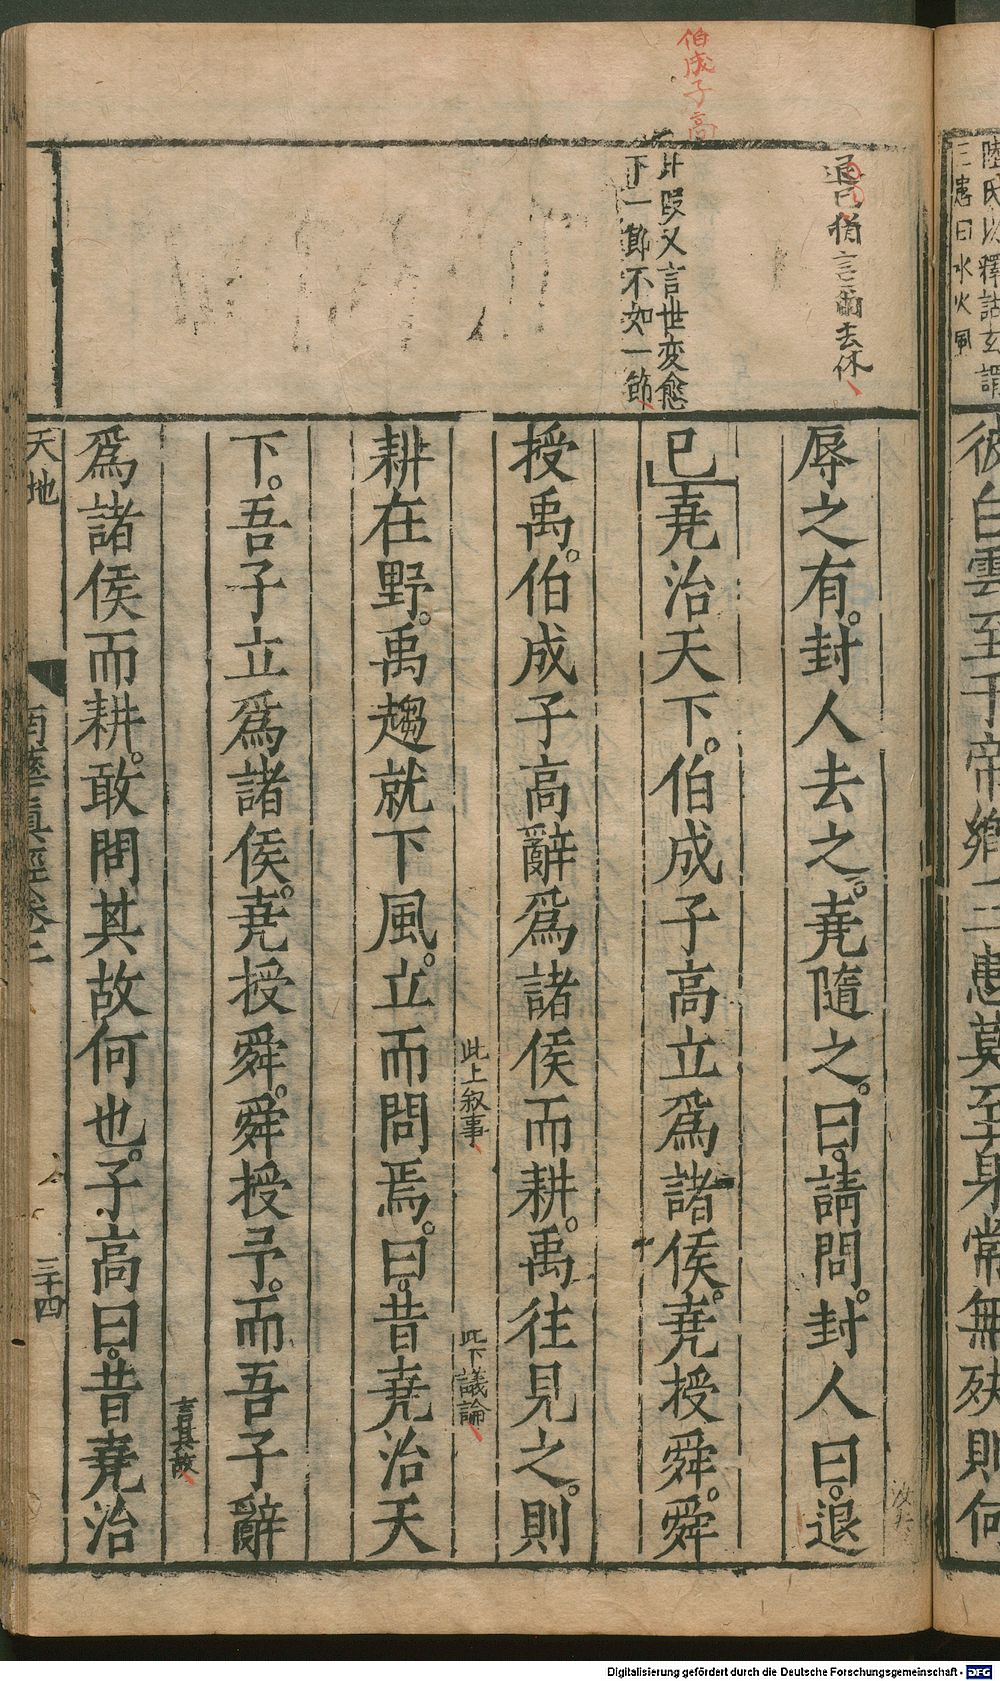 陸氏以釋詁玄謂
三患曰水火風
彼白雲至于帝鄉三患莫至身常無殃則何
伯成子高
退已猶言爾去休
此段又言世变愈
下一節不如一節
辱之有。封人去之。堯隨之。曰。請問。封人曰。退
已堯治天下。伯成子高立爲諸侯。堯授舜。舜
授禹。伯成子高辭爲諸侯而耕。禹往見之。則
此上叙事
此下議論
耕在野。禹趨就下風。立而問焉。曰。昔堯治天
下。吾子立爲諸侯。堯授舜。舜授予。而吾子辭
言其故
爲諸侯而耕。敢問其故何也。子高曰。昔堯治
天地
南華真經卷二
三十四
Digitalisierung gefördert durch die Deutsche Forschungsgemeinschaft - DFG